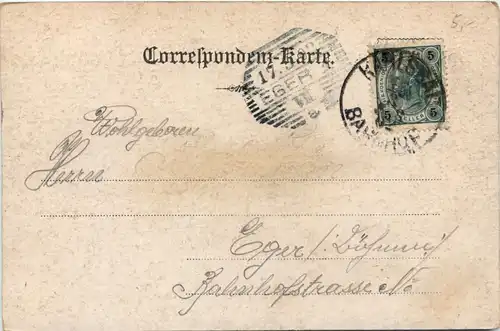 5,-
Correspondenz-Karte.
17.
EGER
5 5
BAHNHOF
Wohlgeboren
Herrn
Eger (Böhmen)
Bahnhofstrasse No